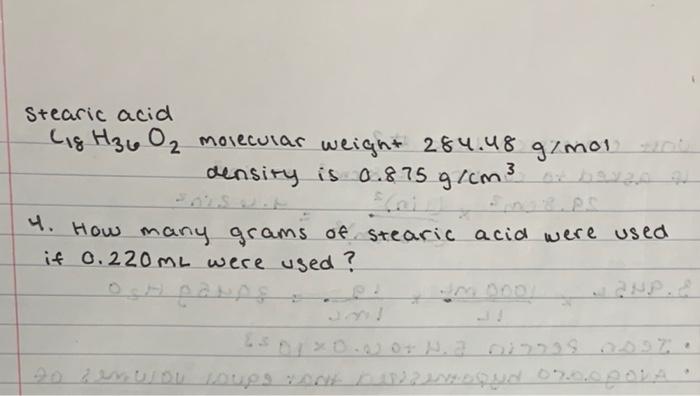 stearic acid
C18 H36 O2 molecular weight 284.48 g/mol
density is 0.875 g/cm³
4. How many grams of stearic acid were used
if 0.220mL were used?